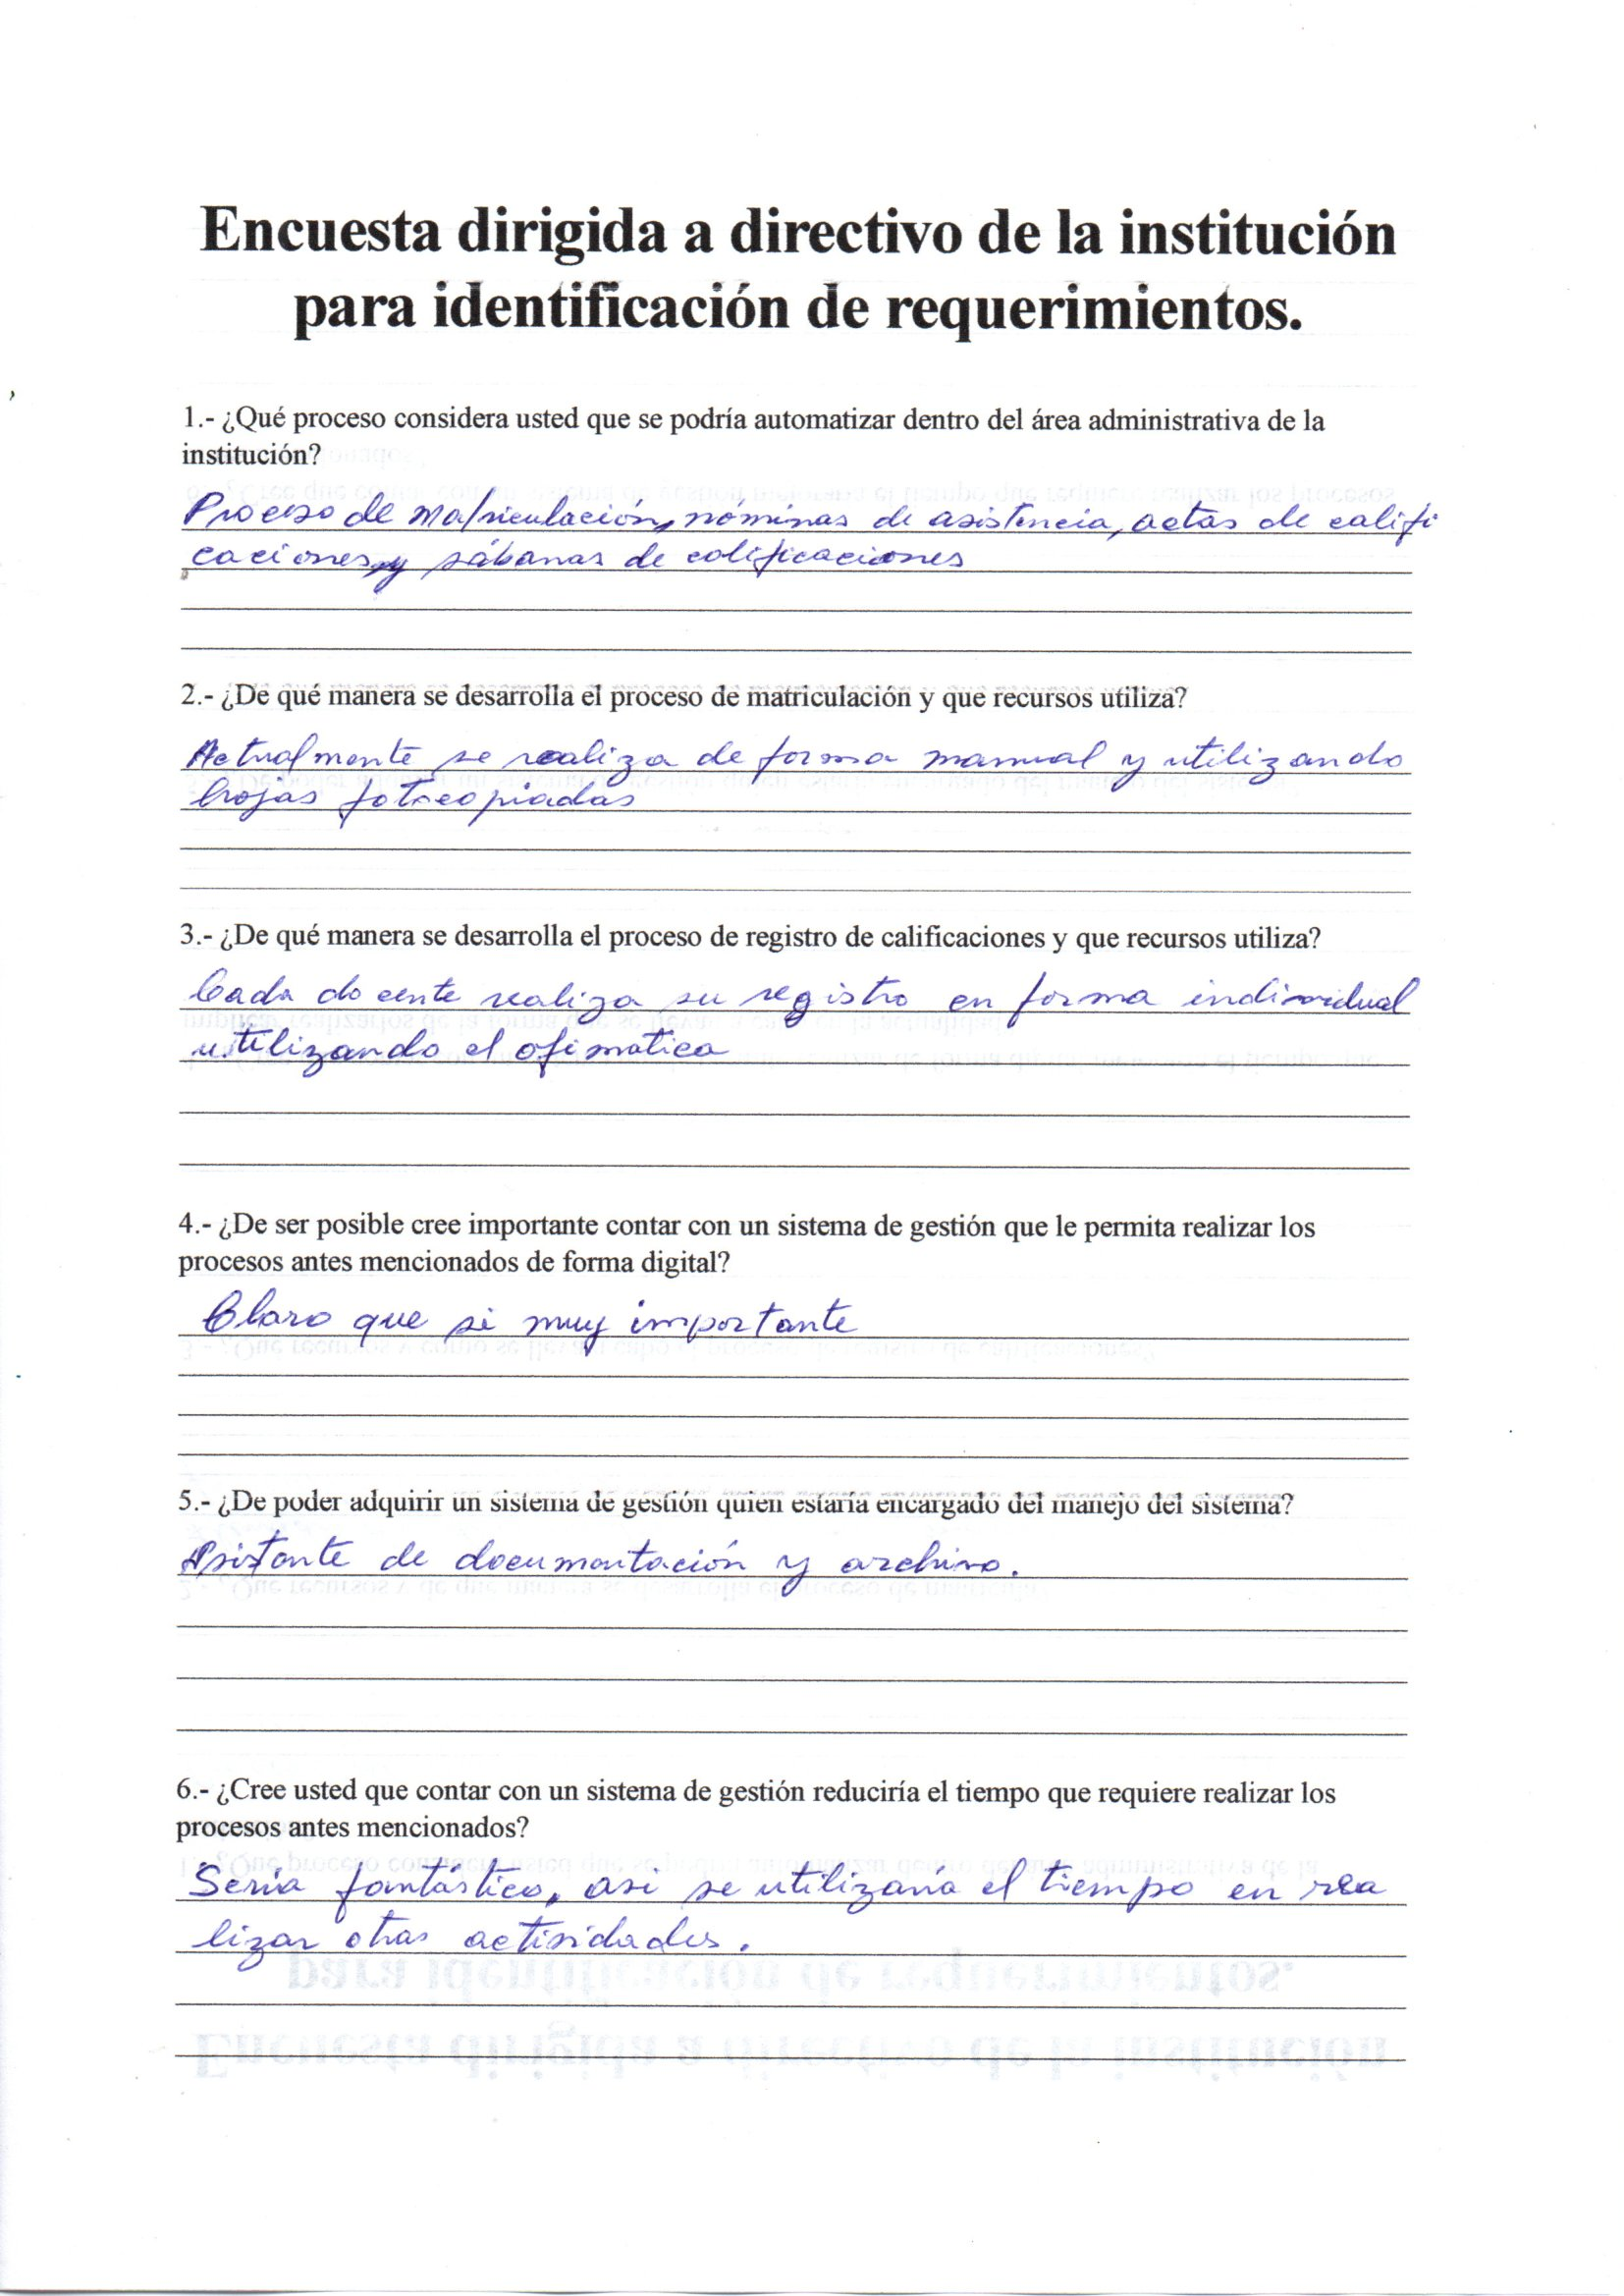 Encuesta dirigida a directivo de la institución
para identificación de requerimientos.
1.- ¿Qué proceso considera usted que se podría automatizar dentro del área administrativa de la
institución?
Proceso de Matriculación, nóminas de asistencia, actas de califi
caciones y sábanas de calificaciones
2.- ¿De qué manera se desarrolla el proceso de matriculación y que recursos utiliza?
Actualmente se realiza de forma manual y utilizando
hojas fotocopiadas
3.- ¿De qué manera se desarrolla el proceso de registro de calificaciones y que recursos utiliza?
Cada docente realiza su registro en forma individual
utilizando el ofimatica
4.- ¿De ser posible cree importante contar con un sistema de gestión que le permita realizar los
procesos antes mencionados de forma digital?
Claro que si muy importante
5.- ¿De poder adquirir un sistema de gestión quien estaría encargado del manejo del sistema?
Asistente de documentación y archivo.
6.- ¿Cree usted que contar con un sistema de gestión reduciría el tiempo que requiere realizar los
procesos antes mencionados?
Sería fantástico, asi se utilizaría el tiempo en rea
lizar otras actividades.